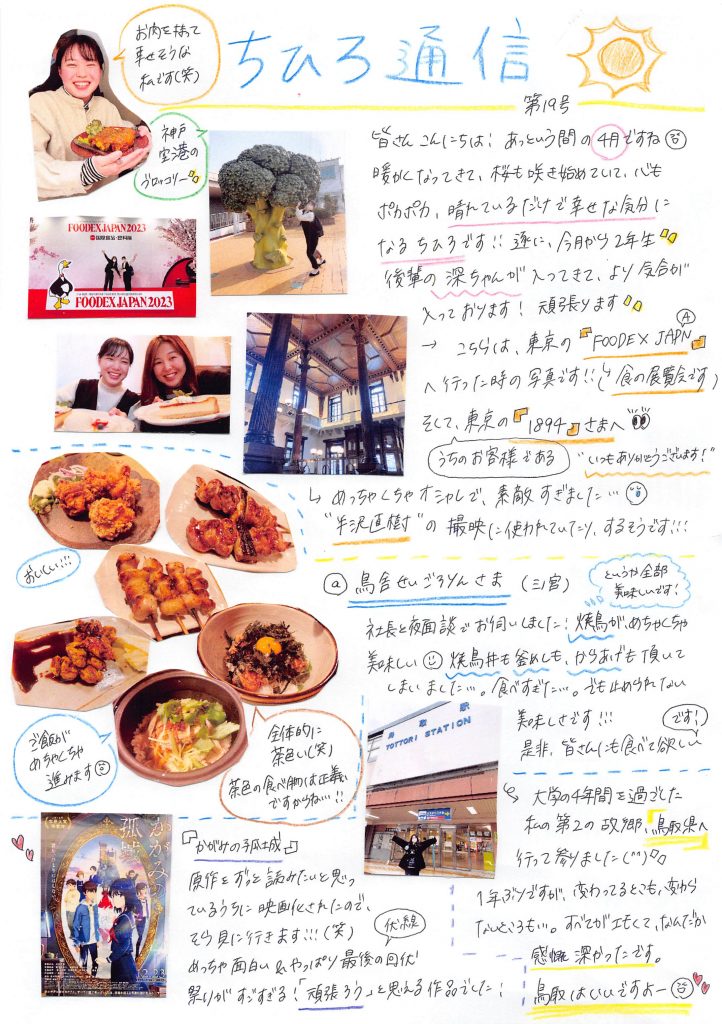 ちひろ通信
第19号
お肉を持って
幸せそうな
私です(笑)
神戸
空港の
ブロッコリー
FOODEX JAPAN 2023
FOODEX JAPAN 2023
皆さんこんにちは! あっという間の4月ですね
暖かくなってきて、桜も咲き始めていて、心も
ポカポカ、晴れているだけで幸せな気分に
なるちひろです!! 遂に、今月から2年生
後輩の深ちゃんが入ってきて、より気合が
入っております! 頑張ります
→ こちらは、東京の『FOODEX JAPN』
A
へ行った時の写真です!!(食の展覧会です)
そして、東京の『1894』さまへ
うちのお客様である
"いつもありがとうございます!"
↳ めっちゃくちゃオシャレで、素敵すぎました…
"半沢直樹"の撮映に使われていたり、するそうです!!!
おいしい!!!
ⓐ 鳥舎せいごろりんさま (三ノ宮)
というか全部
美味しいです!
社長と夜面談でお伺いしました! 焼鳥が、めちゃくちゃ
美味しい 焼鳥丼も釜めしも、からあげも頂いて
しまいました…。食べすぎた…。でも止められない
美味しさです!!!
是非、皆さんにも食べて欲しい
です!
ご飯が
めちゃくちゃ
進みます
全体的に
茶色い(笑)
茶色の食べ物は正義
ですからね…!!
鳥取駅
TOTTORI STATION
↳ 大学の4年間を過ごした
私の第2の故郷、鳥取県へ
行って参りました(^^)
1年ぶりですが、変わってるとこも、変わら
ないところも…。すべてが エモくて、なんだか
感慨深かったです。
鳥取はいいですよー
かがみの
孤城
『かがみの孤城』
原作をずっと読みたいと思っ
ているうちに映画化されたので、
そら見に行きます!!!(笑)
伏線
めっちゃ面白い&やっぱり最後の回伏
祭りがすごすぎる!「頑張ろう」と思える作品でした!